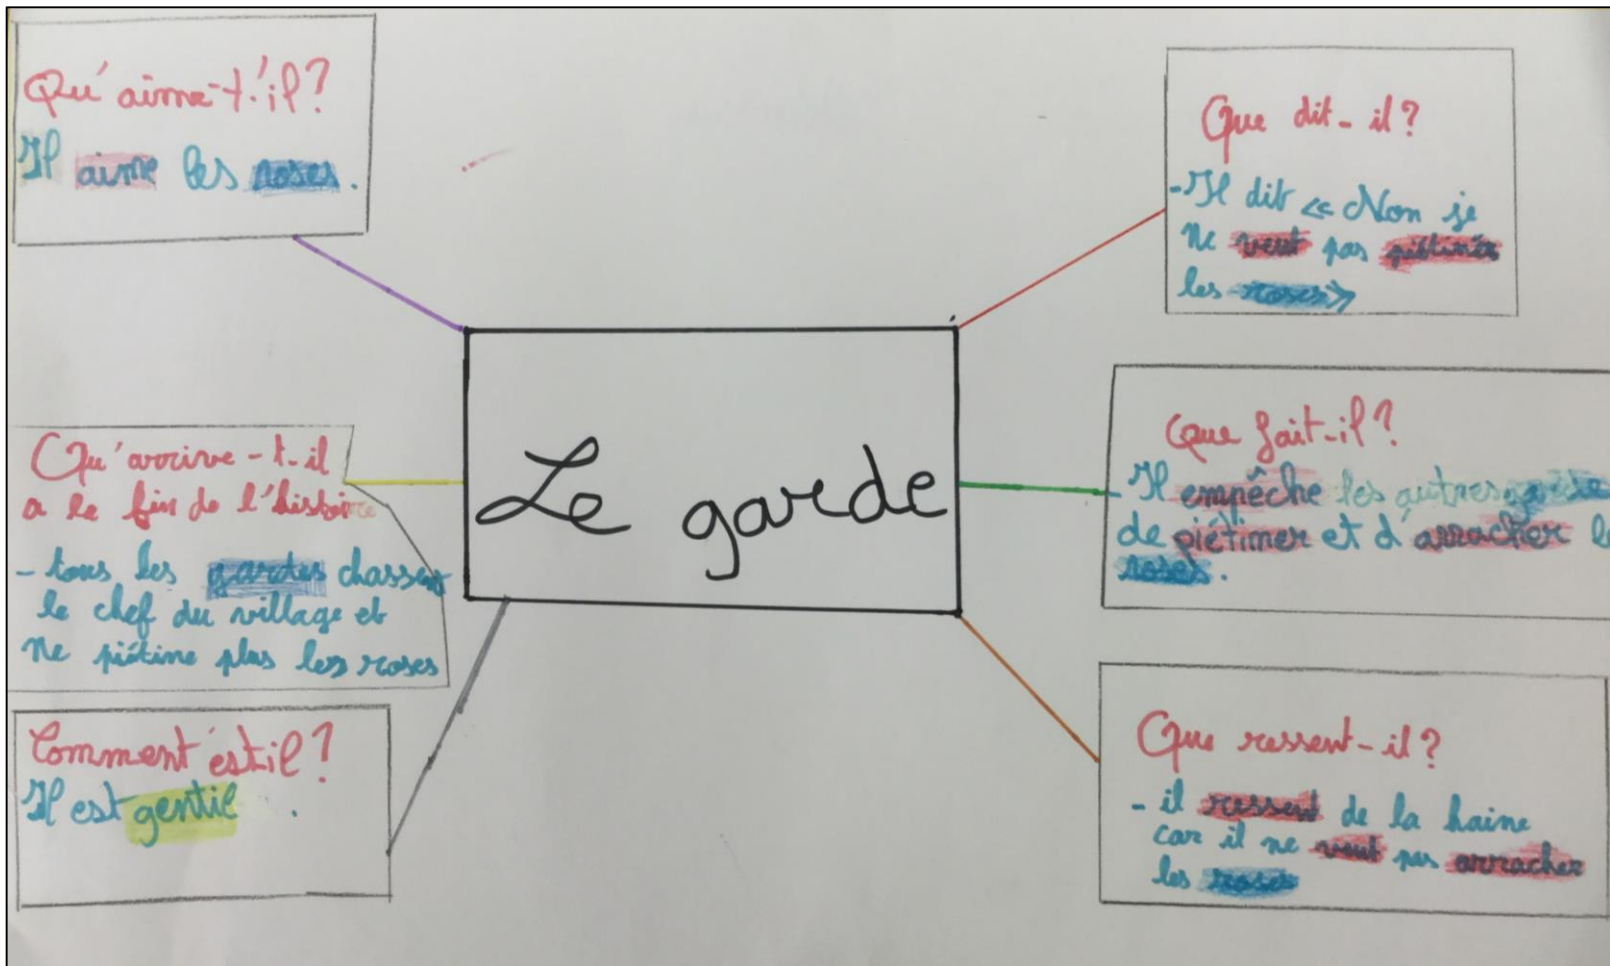 Qu'aime-t'il?
Il aime les roses.
Qu'arrive-t-il
a la fin de l'histoire
- tous les gardes chassent
le chef du village et
ne piétine plus les roses
Comment est-il?
Il est gentil.
Le garde
Que dit-il?
-Il dit « Non je
ne veut pas piétiner
les roses»
Que fait-il?
- Il empêche les autres gardes
de piétimer et d'arracher
roses.
Que ressent-il?
- il ressent de la haine
car il ne veut pas arracher
les roses